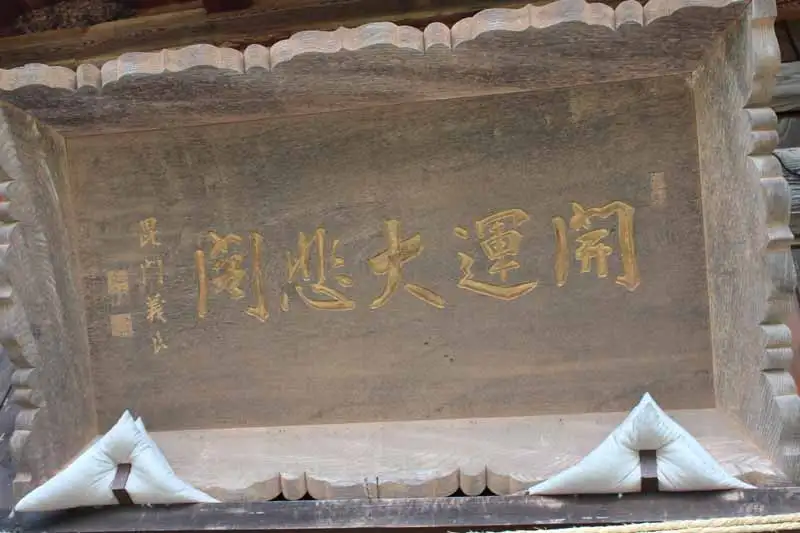 開運大悲閣
毘門義